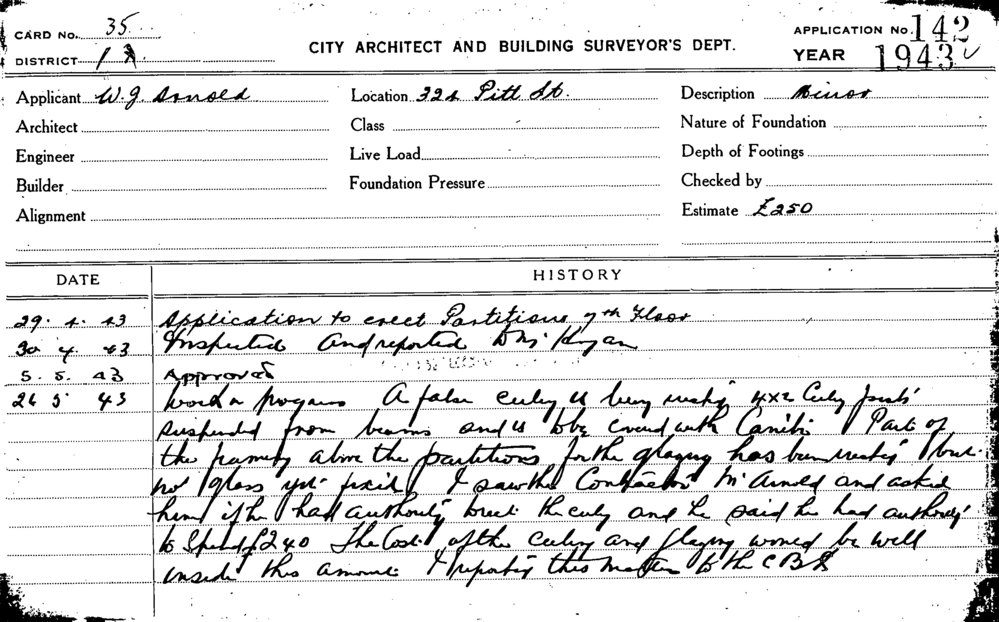 CARD No. 35
DISTRICT 1 A
CITY ARCHITECT AND BUILDING SURVEYOR'S DEPT.
APPLICATION No. 142
YEAR 1943
Applicant W. J. Arnold Location 324 Pitt St. Description Minor
Architect Class Nature of Foundation
Engineer Live Load Depth of Footings
Builder Foundation Pressure Checked by
Alignment Estimate £250
DATE HISTORY
29. 4. 43 Application to erect Partitions 7th Floor
30 4. 43 Inspected and reported to Mr
5. 5. 43 Approved
26 5 43 Work in progress A false ceiling is being erected 4x2 Ceiling Joists
suspended from beams and is to be covered with Canite Part of
the framing above the partitions for the glazing has been erected but
no glass yet fixed I saw the Contractor Mr Arnold and asked
him if he had authority to erect the ceiling and he said he had authority
to Spend £240 The Cost of the ceiling and glazing would be well
inside this amount I reported this matter to the C B S